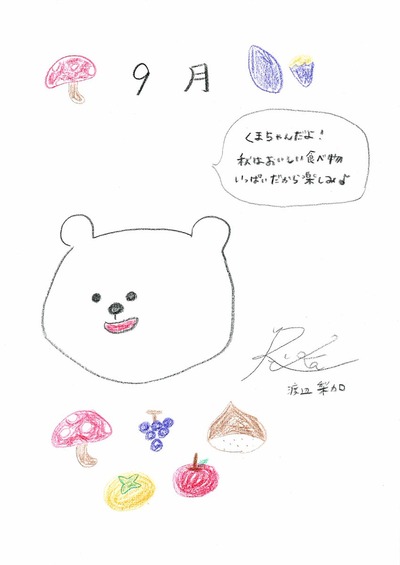 9月
くまちゃんだよ！
秋はおいしい食べ物
いっぱいだから楽しみよ
Rika
渡辺 梨加